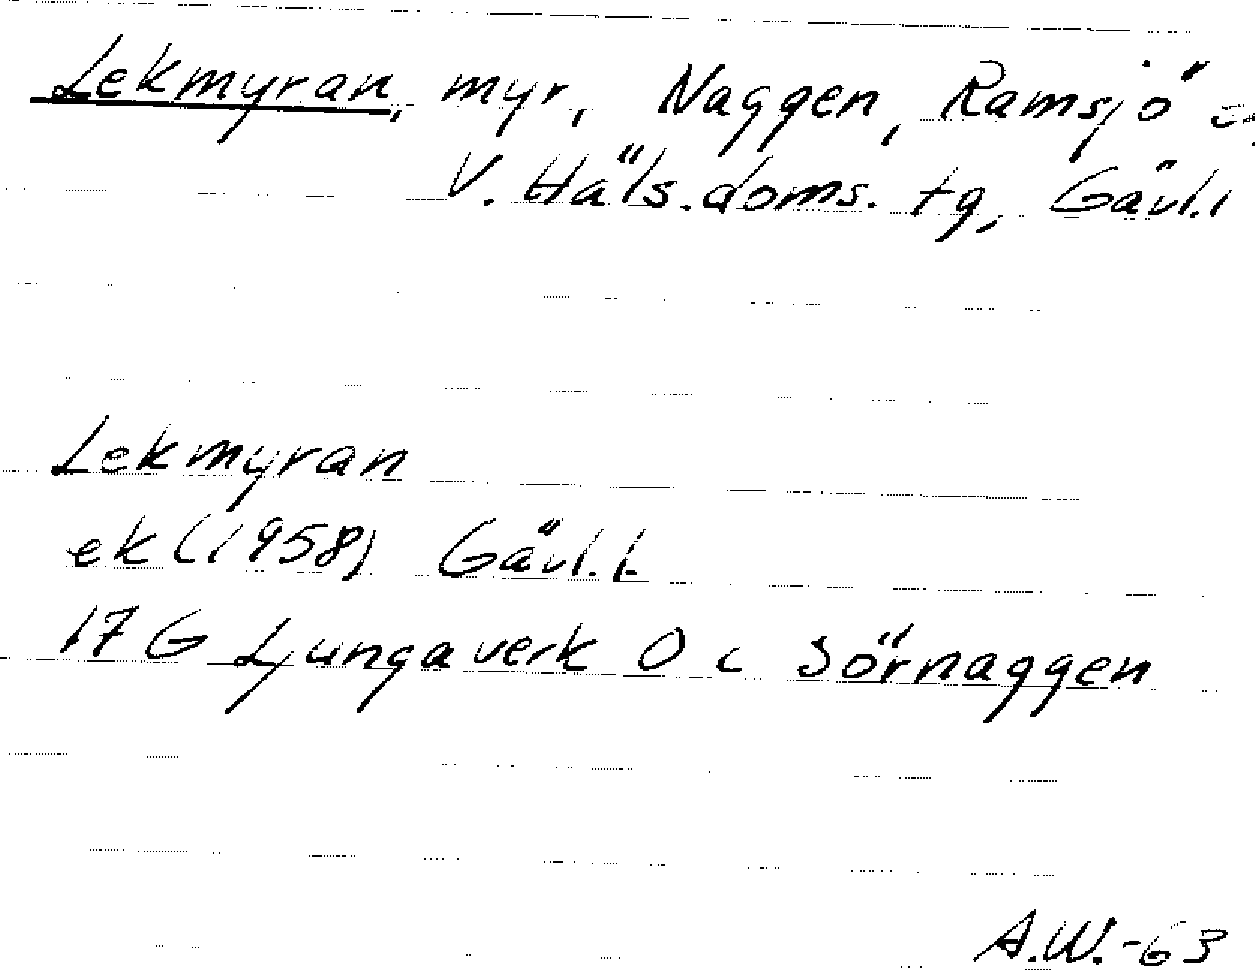 Lekmyran, myr, Naggen, Ramsjö
V. Häls. doms. tg, Gävl.l
Lekmyran
ek (1958) Gävl.l.
17 G Ljungaverk 0 c Sörnaggen
A.W.-63